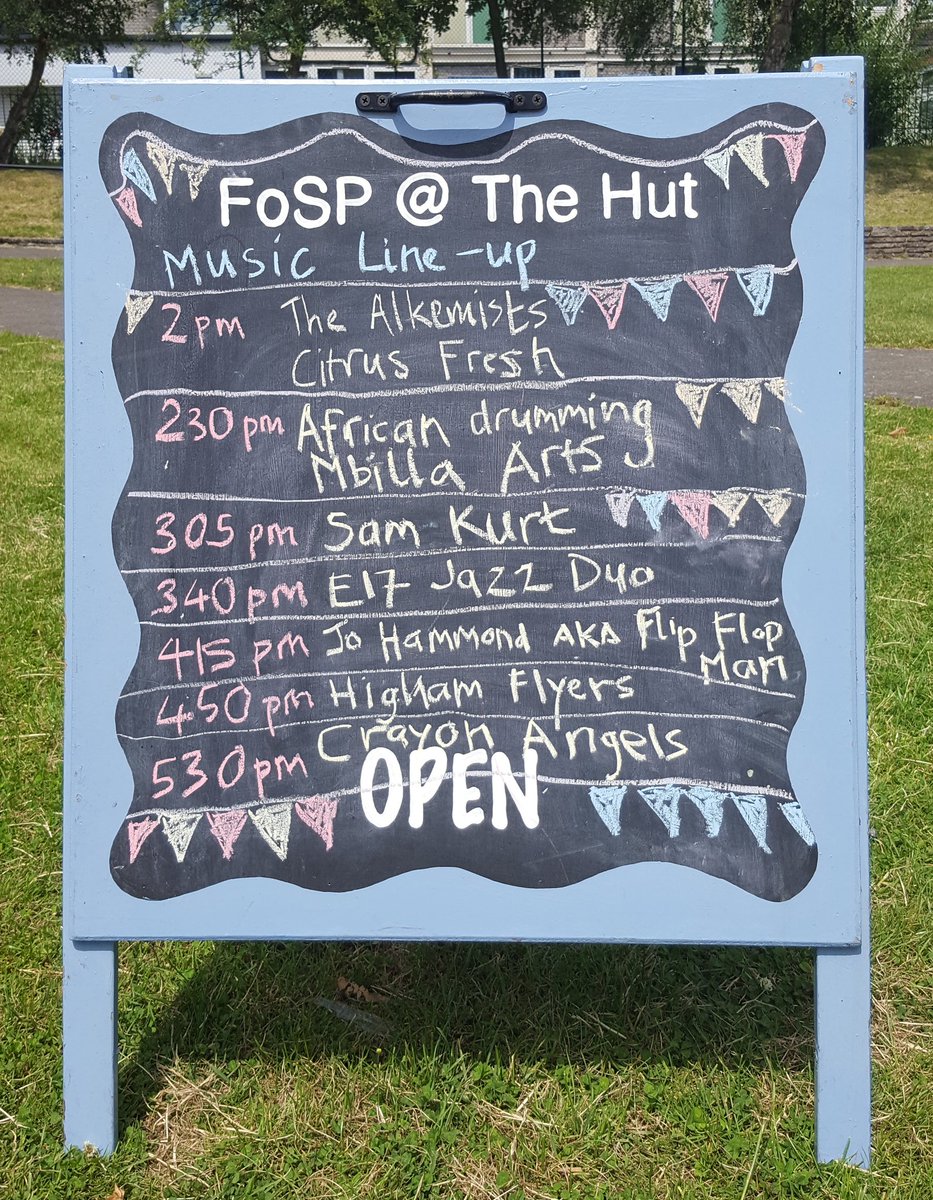 FoSP @ The Hut
Music Line-up
2pm The Alkemists
Citrus Fresh
230pm African drumming
Mbilla Arts
305pm Sam Kurt
340pm E17 Jazz Duo
415pm Jo Hammond AKA Flip Flop
Man
450pm Higham Flyers
530pm Crayon Angels
OPEN